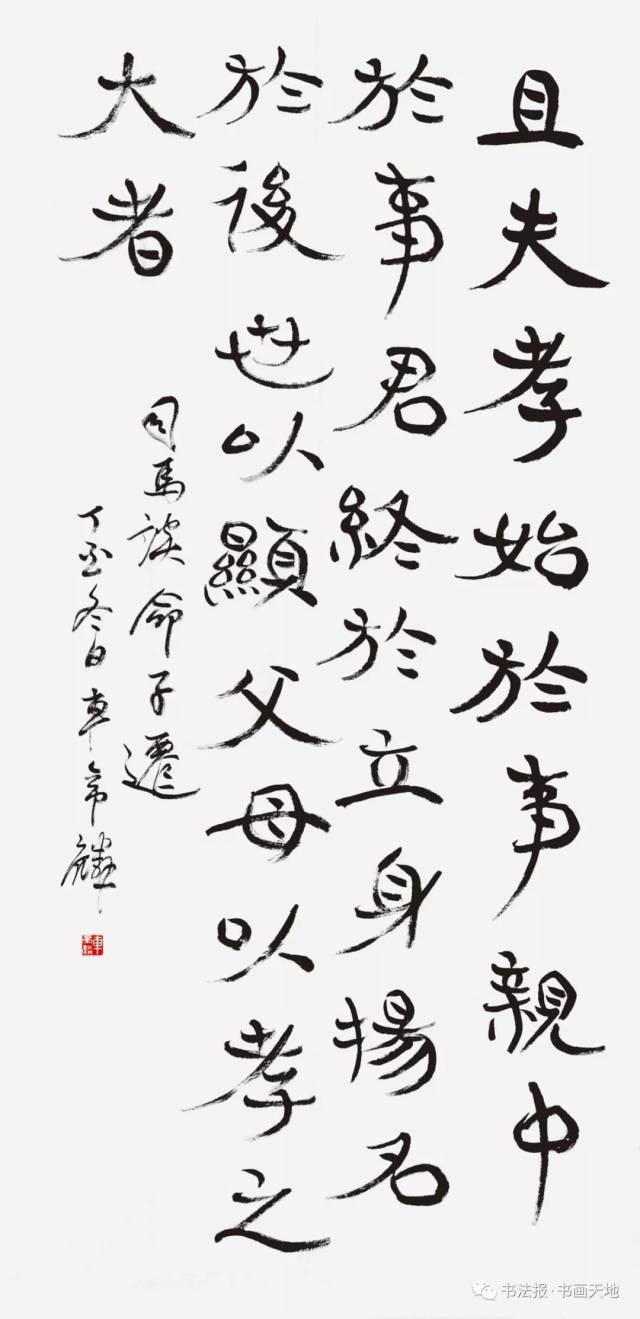 且夫孝始於事親中
於事君終於立身揚名
於後世以顯父母以孝之
大者
司馬談命子遷
丁酉冬日車
书法报·书画天地